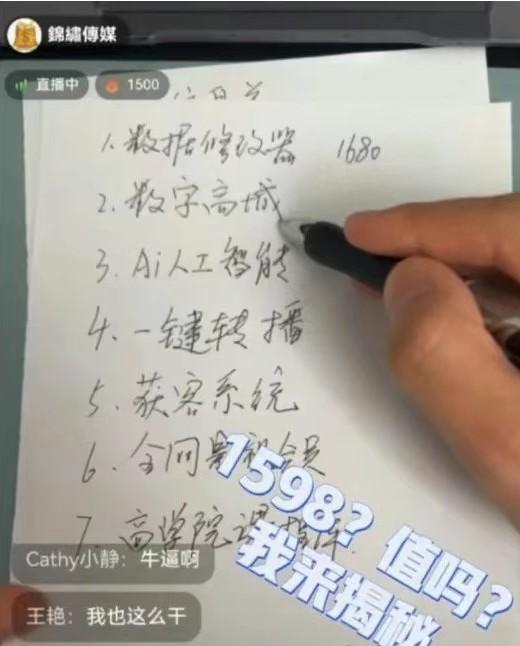 錦繡傳媒
直播中
1500
1.数据修改器 1680
2.数字商城
3.Ai人工智能
4.一键转播
5.获客系统
6.全网影视会员
7.商学院课
1598?值吗?
我来揭秘
Cathy小静：牛逼啊
王艳：我也这么干